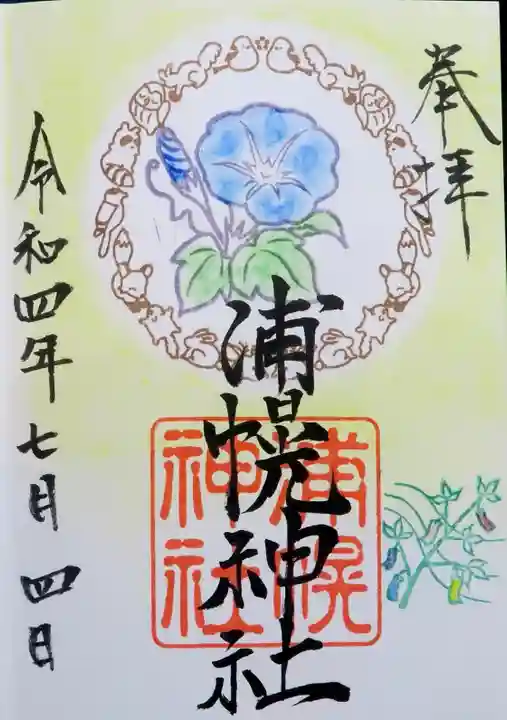 奉拝
浦幌神社
浦幌
神社
令和四年七月四日